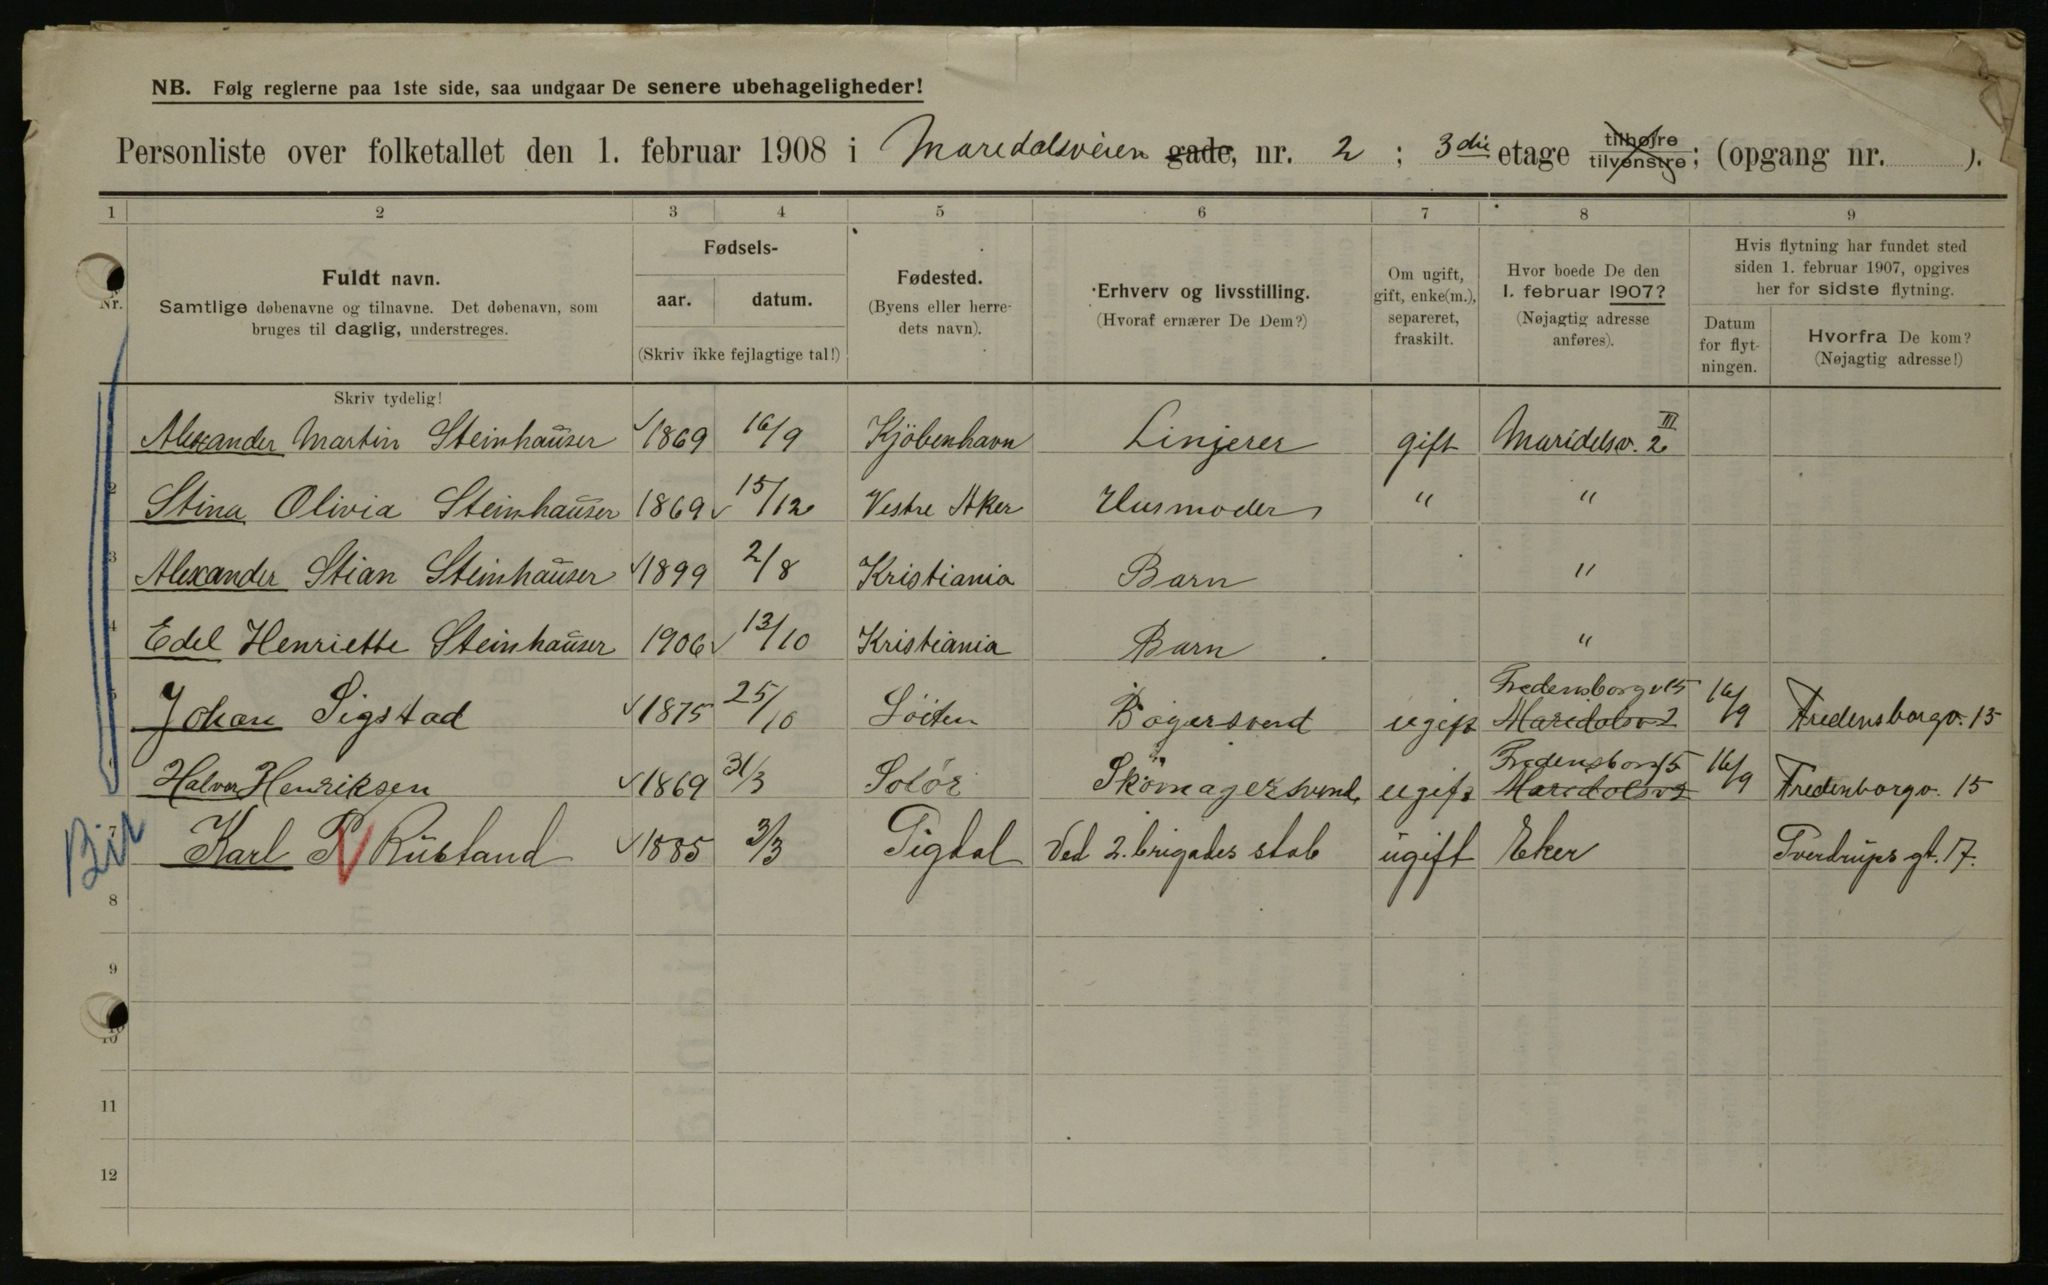 NB. Følg reglerne paa 1ste side, saa undgaar De senere ubehageligheder!
Personliste over folketallet den 1. februar 1908 i Maridalsveien gade, nr. 2 ; 3die etage tilhøjre tilvenstre; (opgang nr. ).
1 2 3 4 5 6 7 8 9
Nr.
Fuldt navn.
Samtlige døbenavne og tilnavne. Det døbenavn, som
bruges til daglig, understreges.
Fødsels-
aar. datum.
(Skriv ikke fejlagtige tal!)
Fødested.
(Byens eller herre-
dets navn).
Erhverv og livsstilling.
(Hvoraf ernærer De Dem?)
Om ugift,
gift, enke(m.),
separeret,
fraskilt.
Hvor boede De den
1. februar 1907?
(Nøjagtig adresse
anføres).
Hvis flytning har fundet sted
siden 1. februar 1907, opgives
her for sidste flytning.
Datum
for flyt-
ningen.
Hvorfra De kom?
(Nøjagtig adresse!)
Skriv tydelig!
Alexander Martin Steinhaüser 1869 16/9 Kjöbenhavn Linjerer gift Maridelsv. 2 III
2 Stina Olivia Steinhaüser 1869 15/12 Vestre Aker Husmoder " "
3 Alexander Stian Steinhaüser 1899 2/8 Kristiania Barn "
4 Edel Henriette Steinhaüser 1906 13/10 Kristiania Barn "
5 Johan Sigstad 1875 25/10 Löiten Bagersvend ugift Fredensborgv 15 Maridalsv 2 16/9 Fredensborgv. 15
6 Halvor Henriksen 1869 31/3 Solör Skomagersvend ugift Fredensborg 15 Maridalsv 2 16/9 Fredenborgv. 15
7 Karl P. Rustand 1885 3/3 Sigdal Ved 2. brigades stab ugift Eker Sverdrups gt. 17.
Bil
8
9
10
11
12